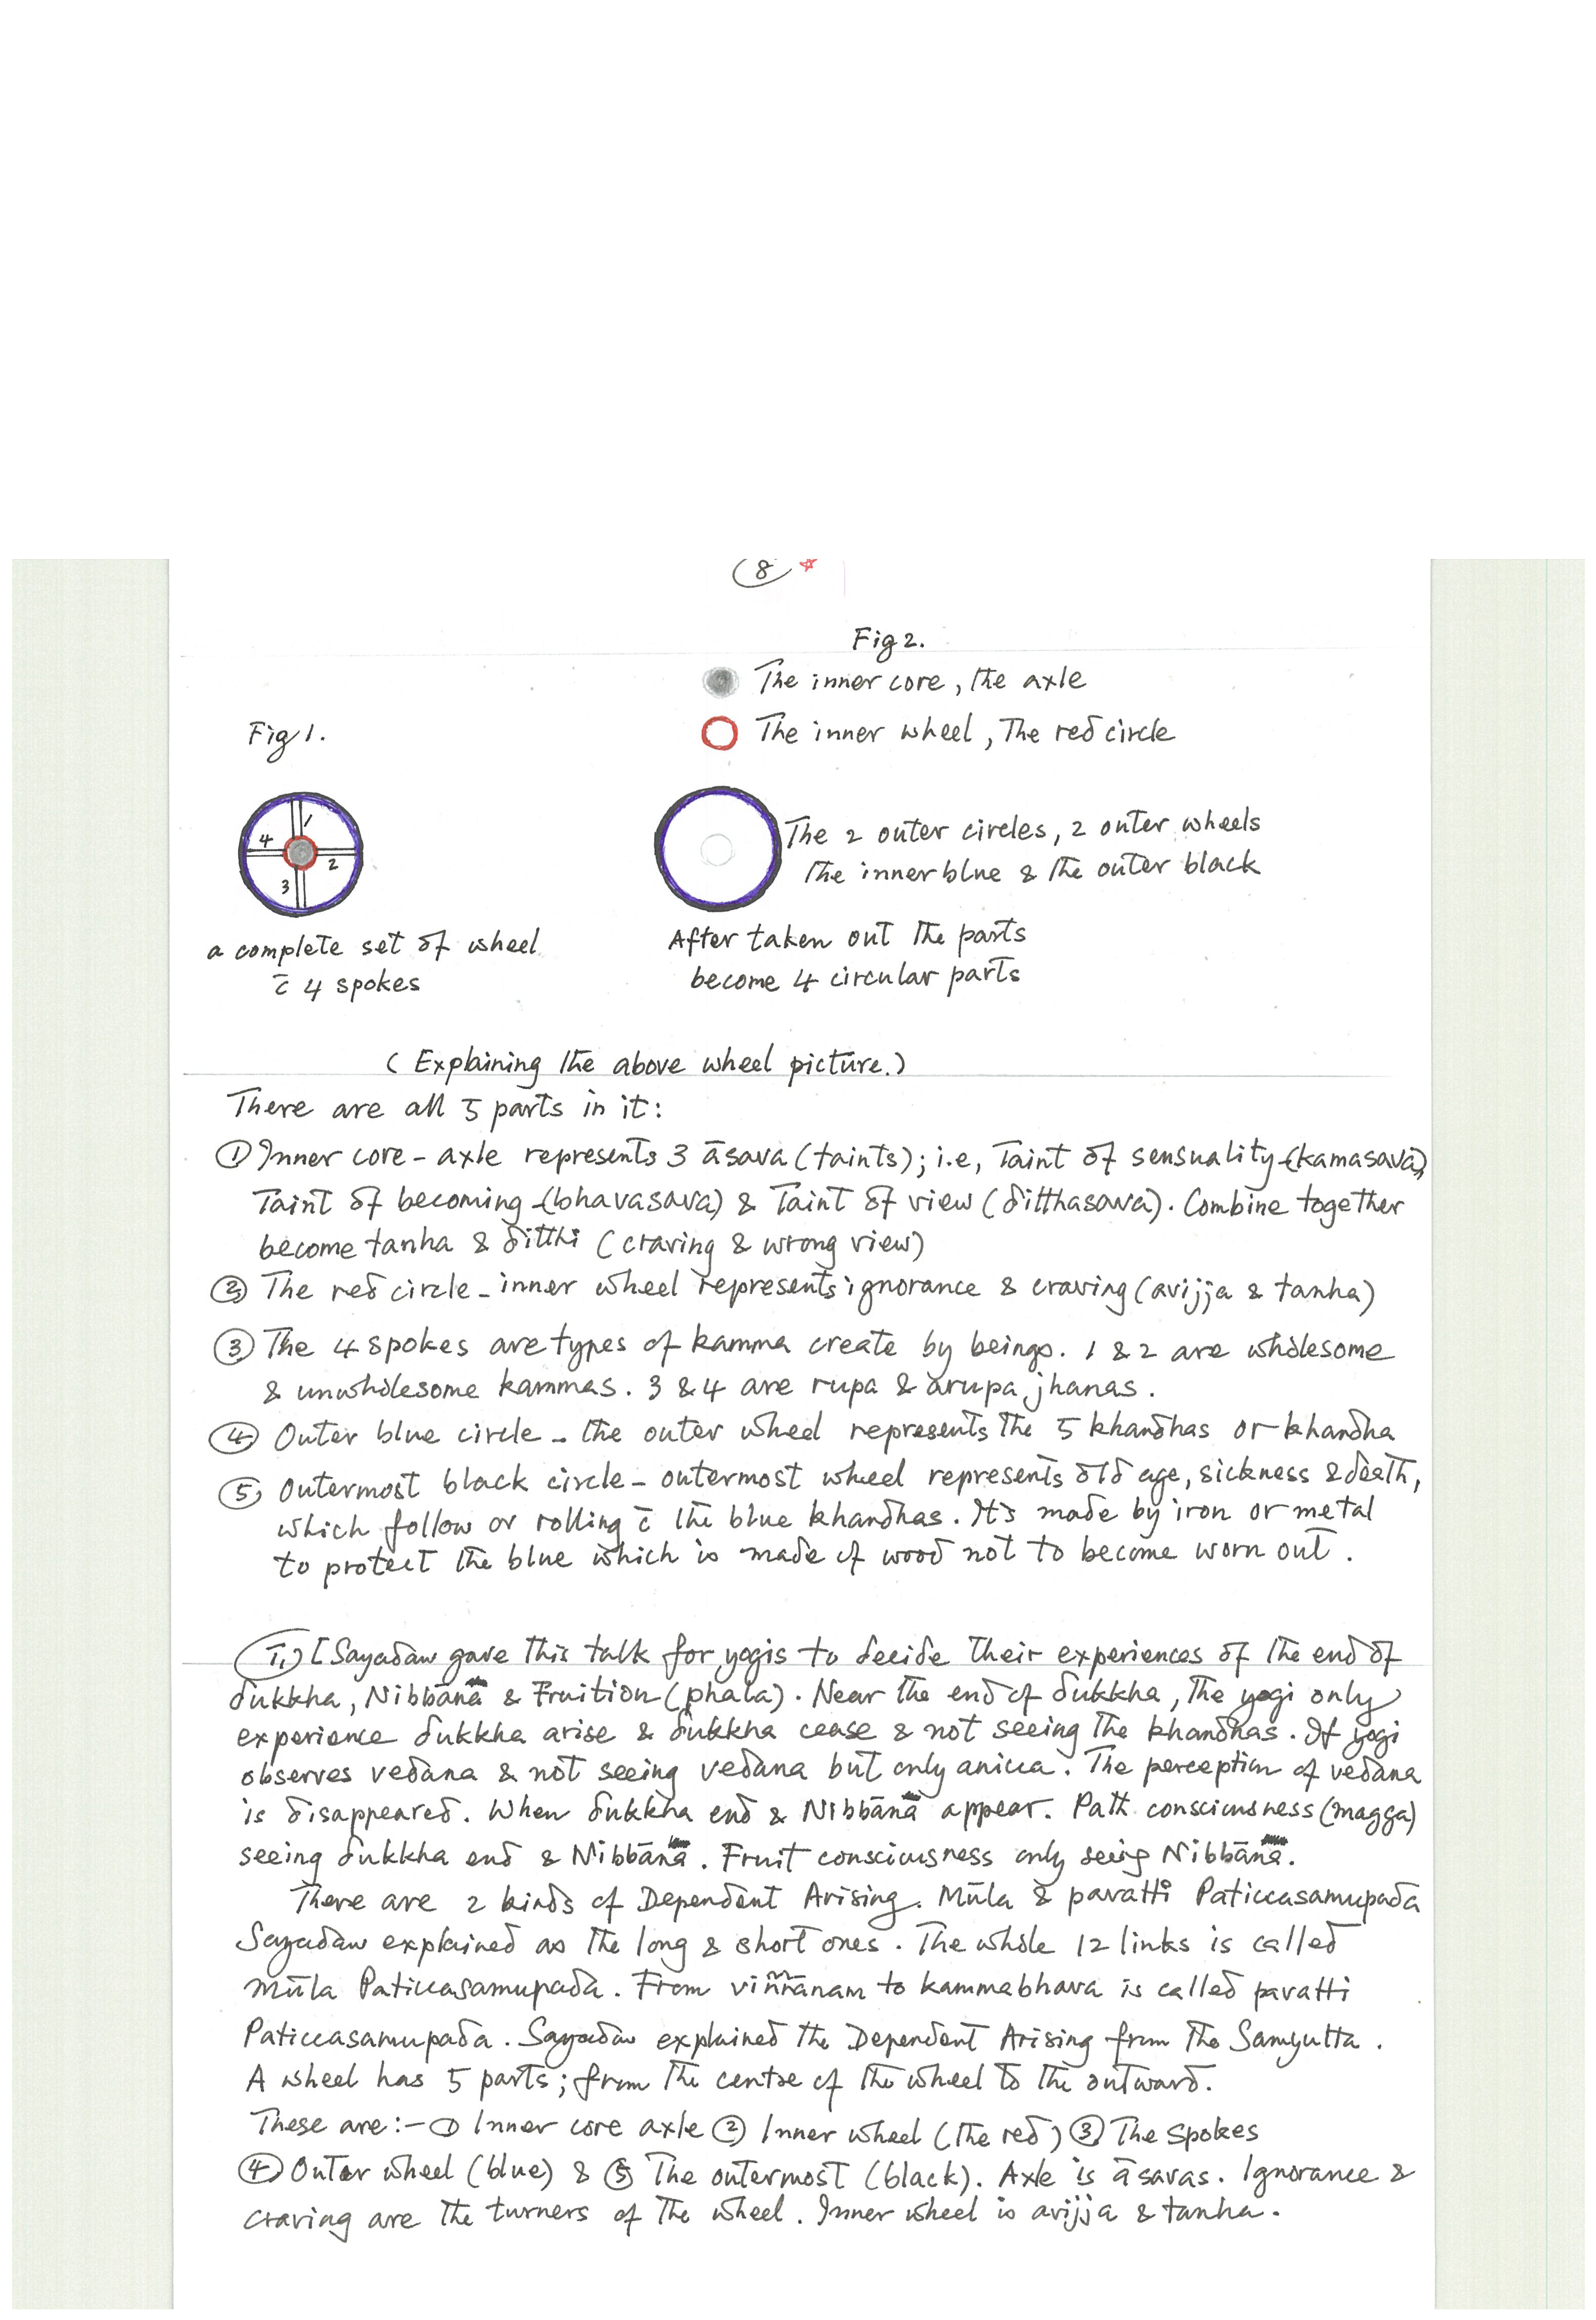 8
Fig 2.
The inner core, the axle
Fig 1.
The inner wheel, The red circle
1
4
2
3
The 2 outer circles, 2 outer wheels
The inner blue & the outer black
a complete set of wheel
c̄ 4 spokes
After taken out the parts
become 4 circular parts
(Explaining the above wheel picture.)
There are all 5 parts in it:
① Inner core – axle represents 3 āsava (taints); i.e, Taint of sensuality (kamasava)
Taint of becoming (bhavasava) & Taint of view (ditthasava). Combine together
become tanha & ditthi (craving & wrong view)
② The red circle – inner wheel represents ignorance & craving (avijja & tanha)
③ The 4 spokes are types of kamma create by beings. 1 & 2 are wholesome
& unwholesome kammas. 3 & 4 are rupa & arupa jhanas.
④ Outer blue circle – the outer wheel represents the 5 khandhas or khandha
⑤ Outermost black circle – outermost wheel represents old age, sickness & death,
which follow or rolling c̄ the blue khandhas. It's made by iron or metal
to protect the blue which is made of wood not to become worn out.
T1) [Sayadaw gave this talk for yogis to decide their experiences of the end of
dukkha, Nibbāna & Fruition (phala). Near the end of dukkha, the yogi only
experience dukkha arise & dukkha cease & not seeing the khandhas. If yogi
observes vedana & not seeing vedana but only anicca. The perception of vedana
is disappeared. When dukkha end & Nibbāna appear. Path consciousness (magga)
seeing dukkha end & Nibbāna. Fruit consciousness only seeing Nibbāna.
There are 2 kinds of Dependent Arising. Mūla & pavatti Paticcasamupada
Sayadaw explained as the long & short ones. The whole 12 links is called
mūla Paticcasamupada. From viññānam to kammabhava is called pavatti
Paticcasamupada. Sayadaw explained the Dependent Arising from the Samyutta.
A wheel has 5 parts; from the centre of the wheel to the outward.
These are:– ① Inner core axle ② Inner wheel (the red) ③ The spokes
④ Outer wheel (blue) & ⑤ The outermost (black). Axle is āsavas. Ignorance &
craving are the turners of the wheel. Inner wheel is avijja & tanha.